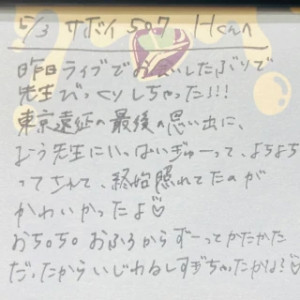 5/3 サボイ507 Hくんへ
昨日ライブでお会いしたぶりで
先生びっくりしちゃった!!!
東京遠征の最後の思い出に、
なう先生にいっぱいぎゅーって、よちよち
ってされて、終始照れてたのが
かわいかったよ♡
おちろちろ おふろからずーってかたかた
だったからいじわるしすぎちゃったかな?♡